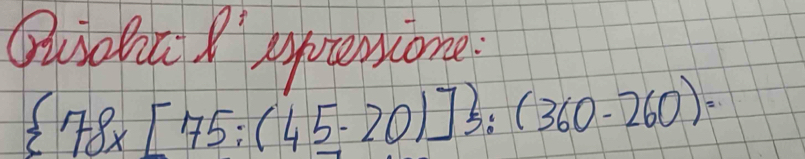 Risolvi l'espressione:
{78x[75:(45-20)]}:(360-260)=